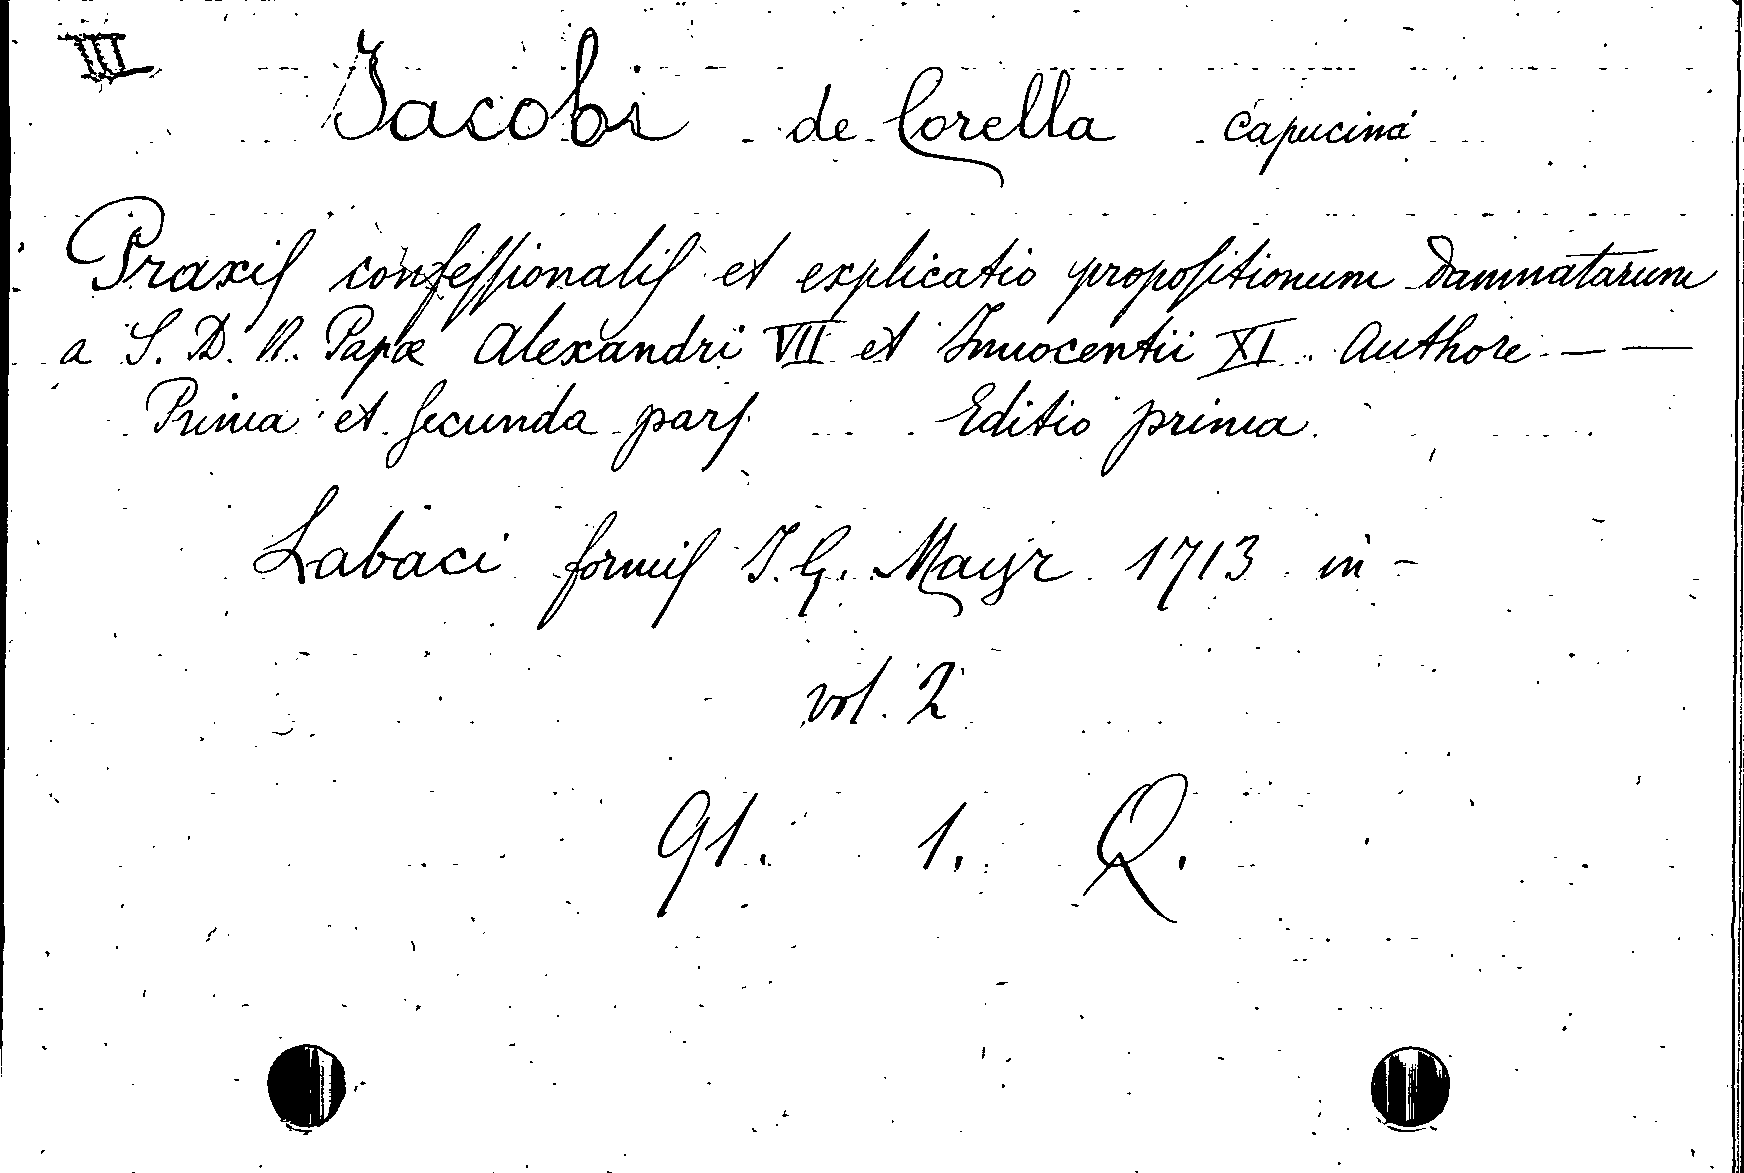 III
Jacobi de Corella Capucina
Praxiſ confeſſionaliſ et explicatio propoſitionum damnatarum
a S. D. N. Papæ Alexandri VII et Innocentii XI. Authore — —
Prima et ſecunda parſ Editio prima.
Labaci formiſ J. G. Mayr 1713 in -
vol. 2
91. 1. Q.